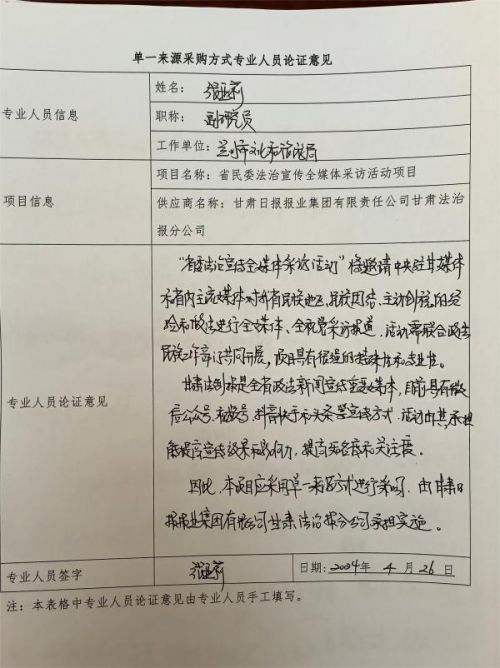 单一来源采购方式专业人员论证意见
专业人员信息
姓名：张亚莉
职称：副研究员
工作单位：兰州市文化和旅游局
项目信息
项目名称：省民委法治宣传全媒体采访活动项目
供应商名称：甘肃日报报业集团有限责任公司甘肃法治
报分公司
专业人员论证意见
“省委法治宣传全媒体采访活动”将邀请中央驻甘媒体
和省内主流媒体对我省民族地区、民族团结、主动创稳的经
验和做法进行全媒体、全视觉采访报道，活动需联合政法
民族工作部门共同开展，项目具有很强的特殊性和专业性。
甘肃法制报是全省政法新闻宣传主要媒体，目前具有微
信公众号、视频号、抖音快手和头条等宣传方式，活动由其承担
能提高宣传效果和影响力，提高知名度和关注度。
因此，本项目应采用单一来源方式进行采购，由甘肃日
报报业集团有限公司甘肃法治报分公司承担实施。
专业人员签字
张亚莉
日期：2024年 4月 26日
注：本表格中专业人员论证意见由专业人员手工填写。